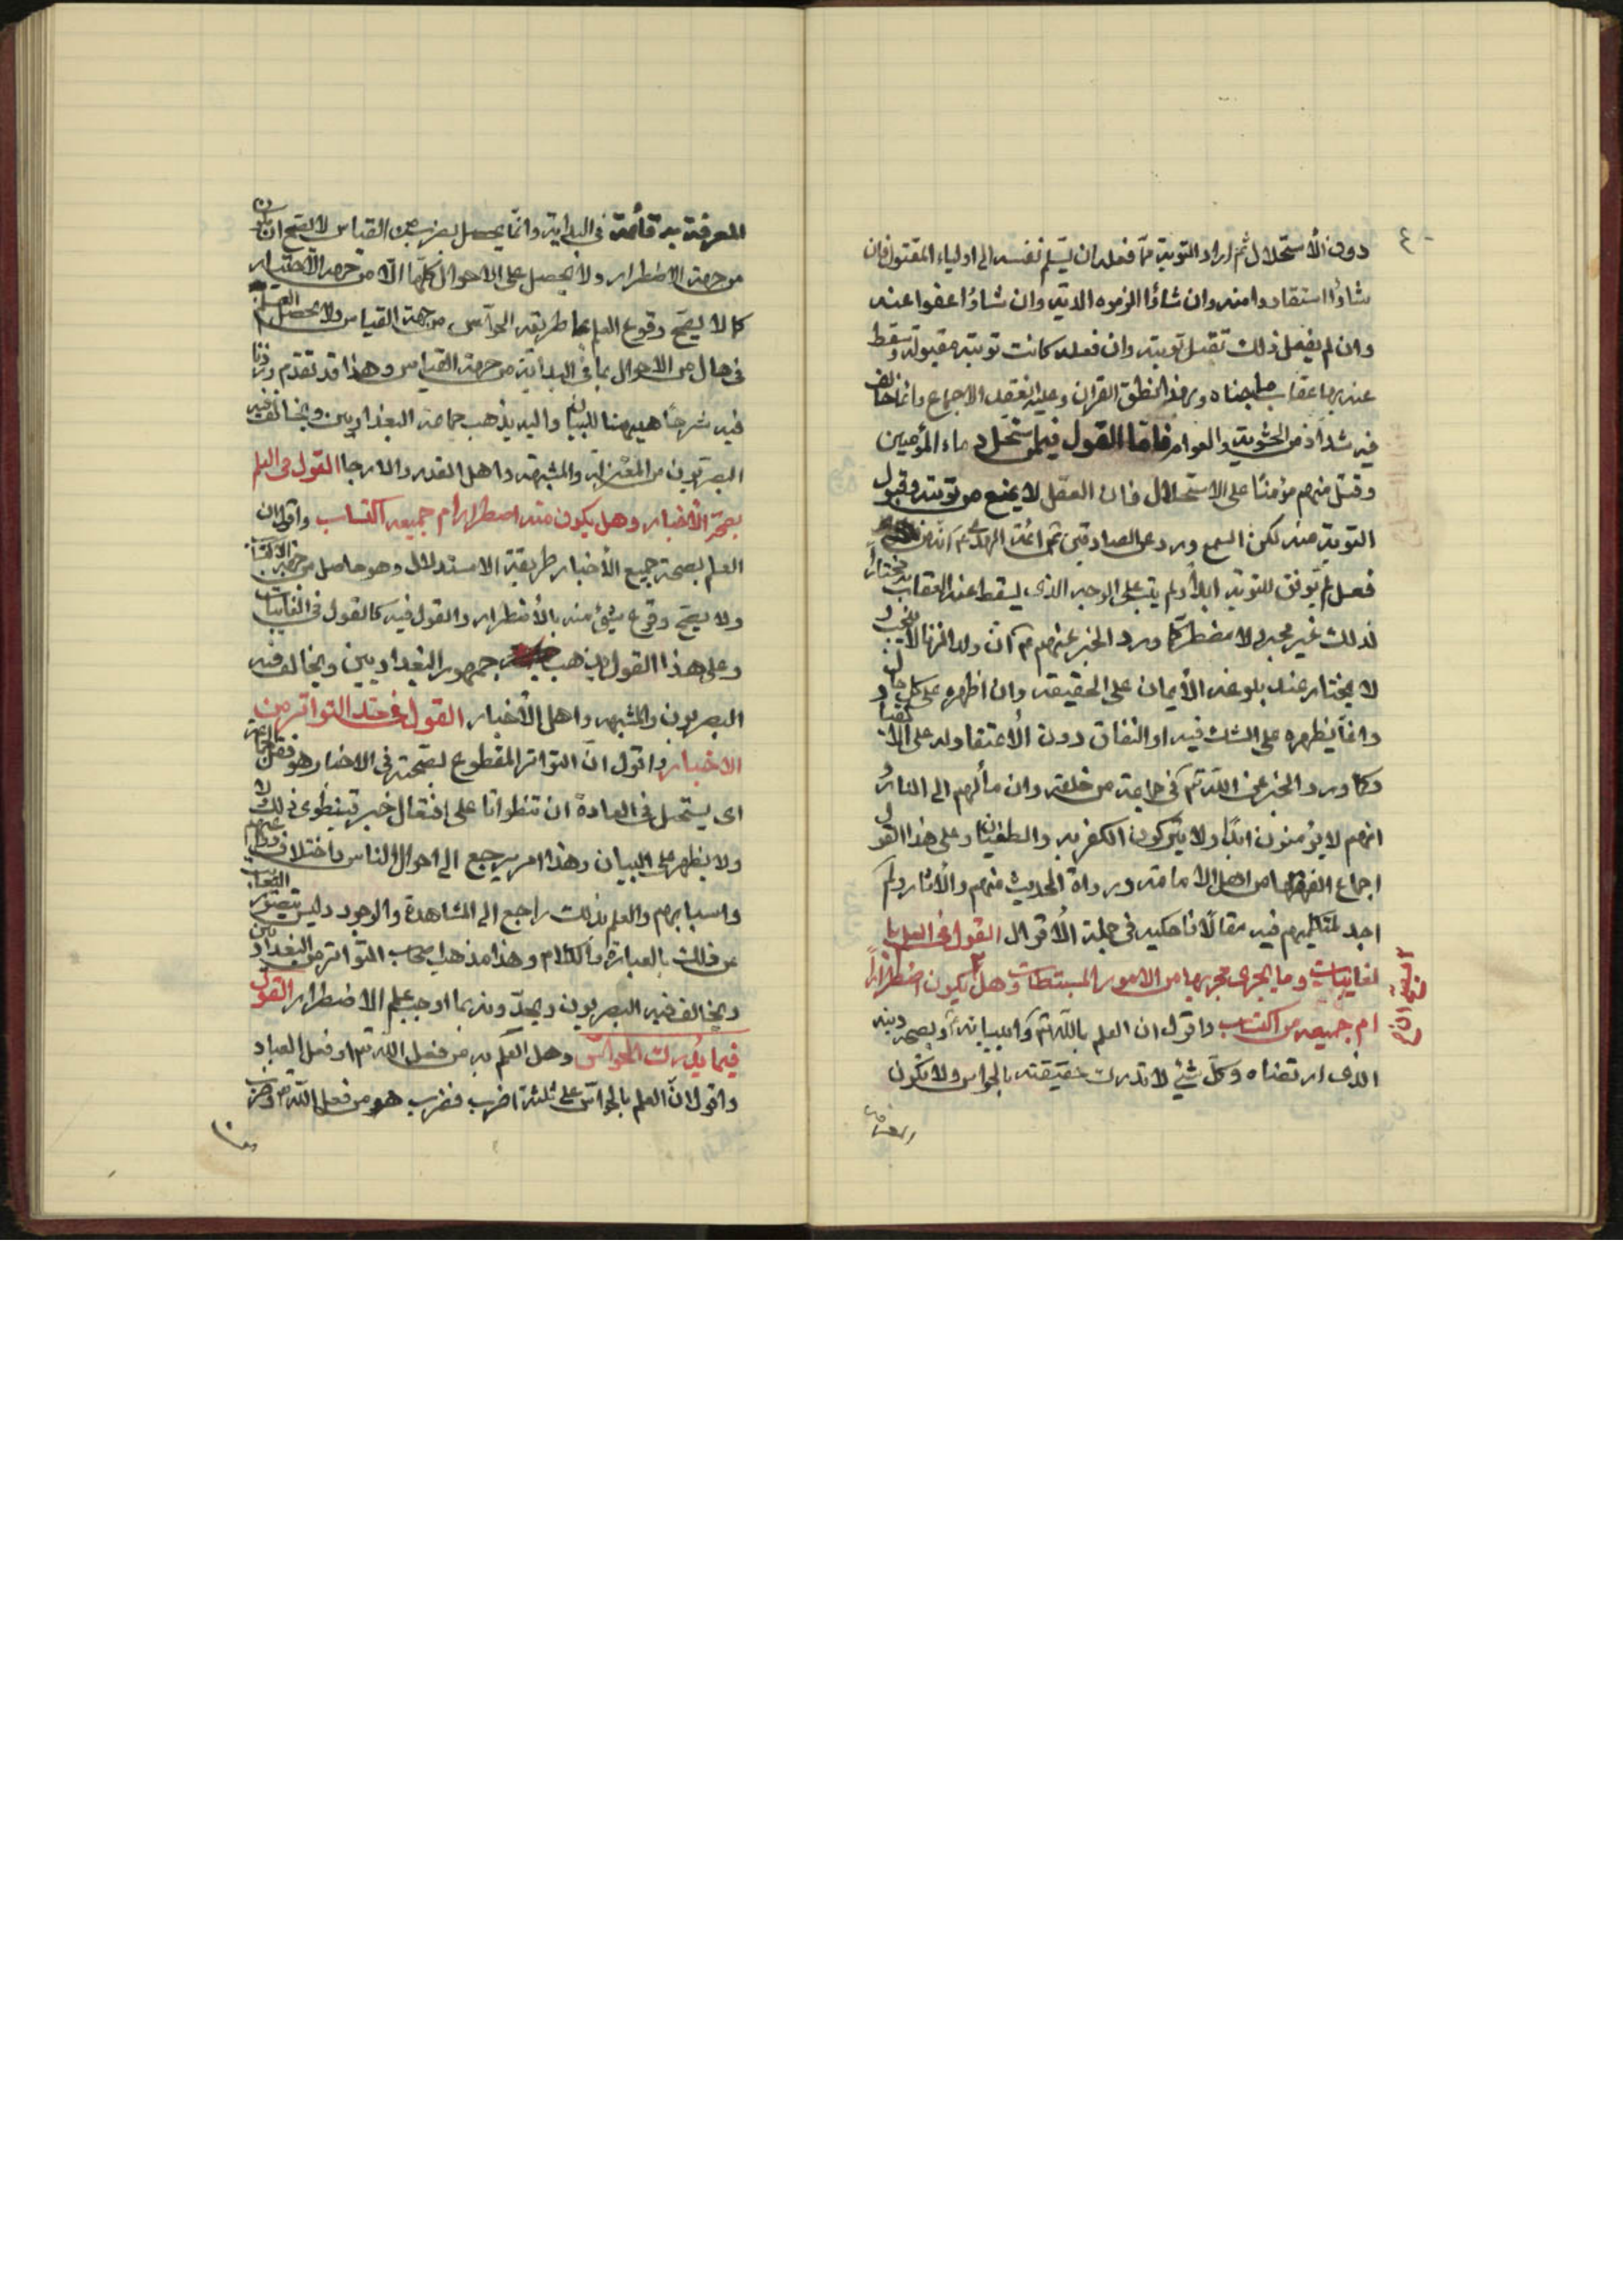 ٤٠
دون الاستحلال ثم اراد التوبة ممّا فعله ان يسلّم نفسه الى اولياء المقتول فان
شاؤا استقادوا منه وان شاؤا الزموه الدية وان شاؤا عفوا عنه
وان لم يفعل ذلك تقبل توبته وان فعله كانت توبته مقبولة وسقط
عنه بها عقاب ما جناه وبهذا نطق القران وعليه انعقد الاجماع وانما خالف
فيه شذاذ من الحشوية والعوام فامّا القول فيمن استحل دماء المؤمنين
وقتل منهم مؤمنًا على الاستحلال فان العقل لا يمنع من توبته وقبول
التوبة منه لكن السمع ورد عن الصادقين من ائمة الهدى ع انه من
فعل لم يوفق للتوبة ابدًا ولم يتب على الوجه الذى يسقط عنه العقاب به مختارًا
لذلك غير مجبر ولا مضطر كما ورد الخبر عنهم ع ان ولد الزنا لا ينجب و
لا يختار عند بلوغه الأيمان على الحقيقة وان اظهره على كل حال
وانما يظهره على الشك فيه او النفاق دون الاعتقاد له على الايقان
وكما ورد الخبر عن اللّه تع فى جماعة من خلقه وان مألهم الى النار و
انهم لا يؤمنون ابدًا ولا يتركون الكفر به والطغيان وعلى هذا القول
اجماع الفقهاء من اهل الامامة ورواة الحديث منهم والأثار ولم
اجد لمتكلميهم فيه مقالًا فاحكيه فى جملة الاقوال القول فى العلم با
لغائبات وما يجرى مجريها من الامور المستنبطات وهل يكون اضطرارًا
ام جميعه من اكتساب واقول ان العلم باللّه تع وانبيائه ع وبصحة دينه
الذى ارتضاه وكل شئ لا تدرك حقيقته بالحواس ولا تكون
المعرفة
المعرفة به قائمة فى البداية وانّما يحصل بضرب من القياس لا يصح ان يكون
من جهة الاضطرار ولا يحصل على الاحوال كلها الّا من جهة الاكتساب
كما لا يصحّ وقوع العلم بما طريقه الحوّاس من جهة القياس ولا يحصل العلم
فى حال من الاحوال بما فى البداية من جهة القياس وهذا قد تقدم وزدنا
فيه شرحًا هيهنا للبيان واليه يذهب جماعة البغداديين ويخالف فيه
البصريون من المعتزلة والمشبهة واهل القدر والارجا القول فى العلم
بصحّة الأخبار وهل يكون منه اضطرار ام جميعه اكتساب واقول ان
العلم بصحة جميع الأخبار طريقة الاستدلال وهو حاصل من جهة الاكتساب
ولا يصحّ وقوع شئ منه بالأضطرار والقول فيه كالقول فى الغائبات
وعلى هذا القول يذهب جمهور البغداديين ويخالف فيه
البصريون والمشبهه واهل الأخبار القول فى حدّ التواتر من
الاخبار واقول انّ التواتر المقطوع بصحّته فى الاخبار هو نقل الجماعة
اى يستحيل فى العادة ان تتطوأنا على افتعال خبر فينطوى ذلك
ولا يظهر على البيان وهذا امر يرجع الى احوال الناس واختلاف دواعيهم
واسبابهم والعلم بذلك راجع الى المشاهدة والوجود وليس يتصوّر
عن ذلك بالعبارة والكلام وهذا مذهب اصحاب التواتر من البغداديين
ويخالف فيه البصريون ويحدّونه بما اوجب علم الاضطرار القول
فيما يُدرك الحواس وهل العلم به من فعل اللّه تع او فعل العباد
واقول انّ العلم بالحواس على ثلثة اضرب فضرب هو من فعل اللّه تع وضرب